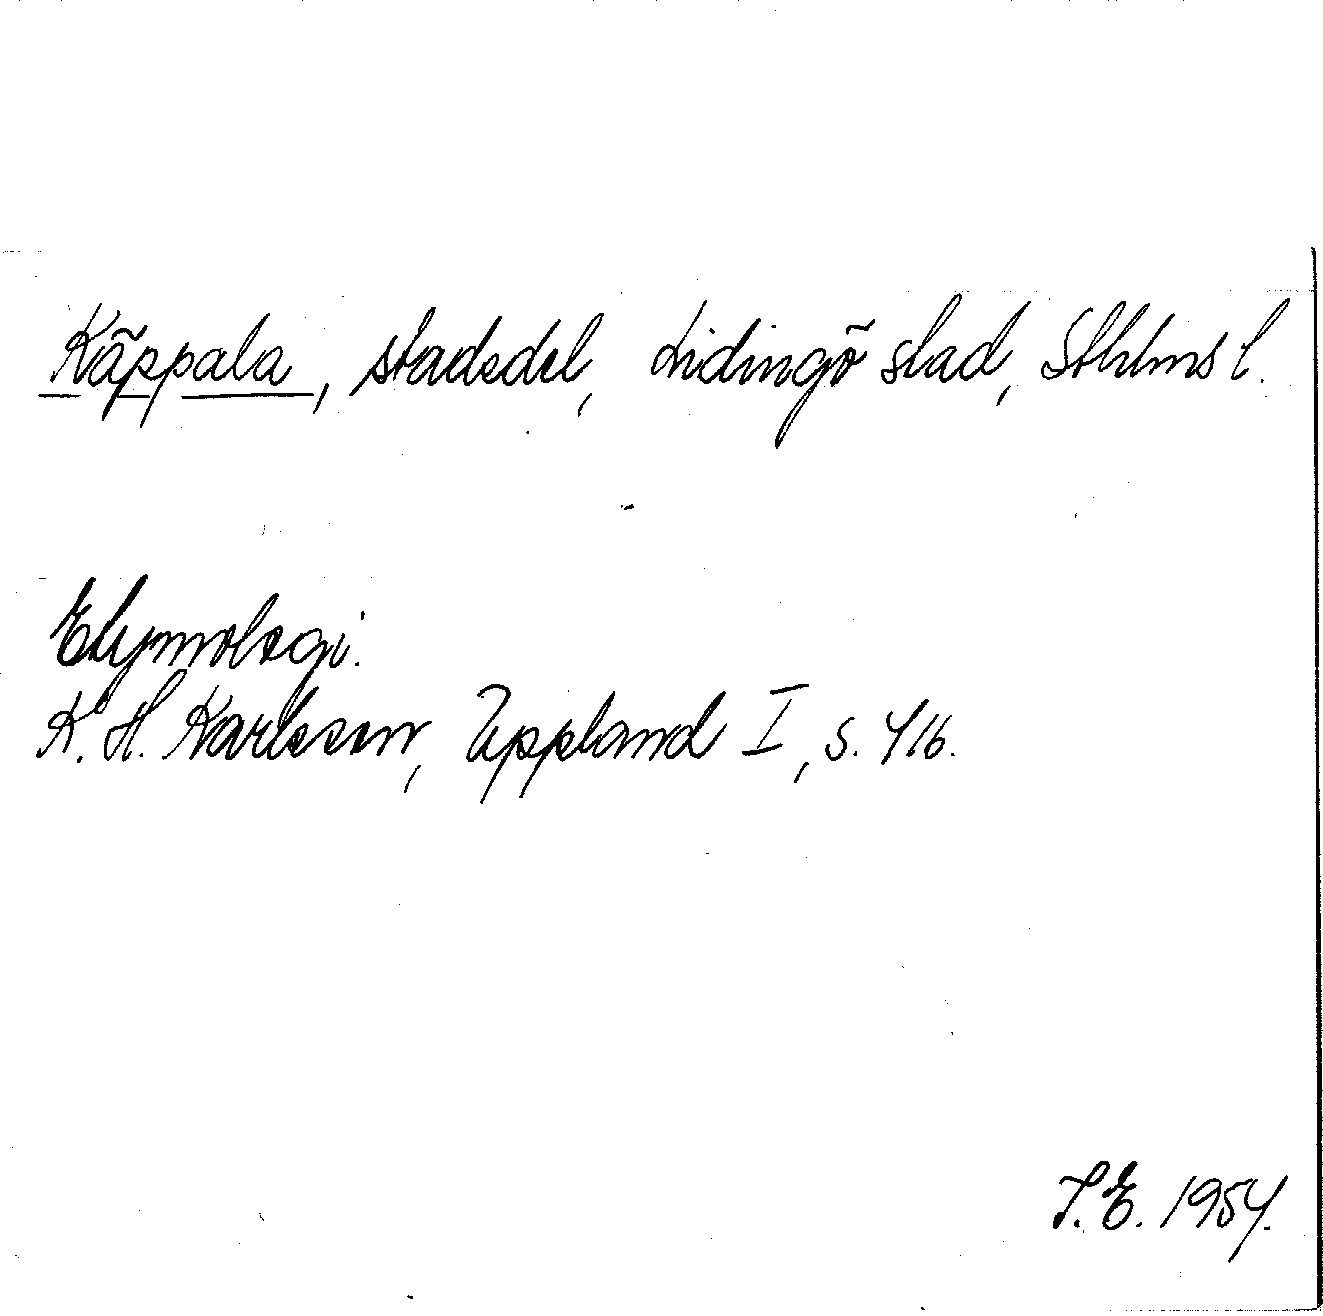 Käppala, stadsdel, Lidingö stad, Sthlms l.
Etymologi.
K. H. Karlsson, Uppland I, s. 416.
S. E. 1954.